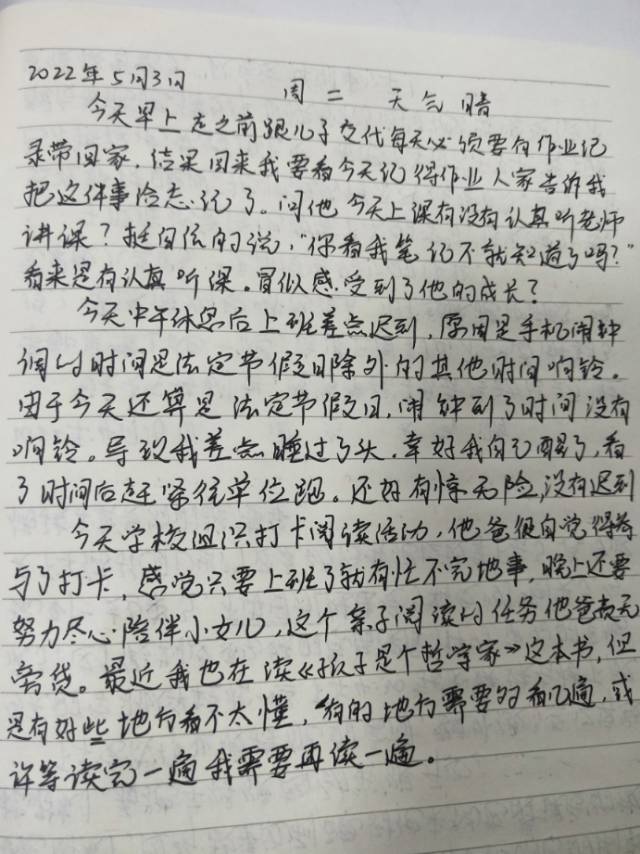 2022年5月3日 周二 天气晴
今天早上走之前跟儿子交代每天必须要有作业记
录带回家,结果回来我要看今天记得作业人家告诉我
把这件事给忘记了。问他今天上课有没有认真听老师
讲课?挺自信的说,"你看我笔记不就知道了吗?"
看来是有认真听课。冒似感受到了他的成长?
今天中午休息后上班差点迟到,原因是手机闹钟
调的时间是法定节假日除外的其他时间响铃。
由于今天还算是法定节假日,闹钟到了时间没有
响铃。导致我差点睡过了头,幸好我自己醒了,看
了时间后赶紧往单位跑。还好有惊无险,没有迟到
今天学校组织打卡阅读活动,他爸很自觉得参
与了打卡,感觉只要上班了就有忙不完地事,晚上还要
努力尽心陪伴小女儿,这个亲子阅读的任务他爸责无
旁贷。最近我也在读《孩子是个哲学家》这本书,但
是有好些地方看不太懂,有的地方需要多看几遍,或
许等读完一遍我需要再读一遍。